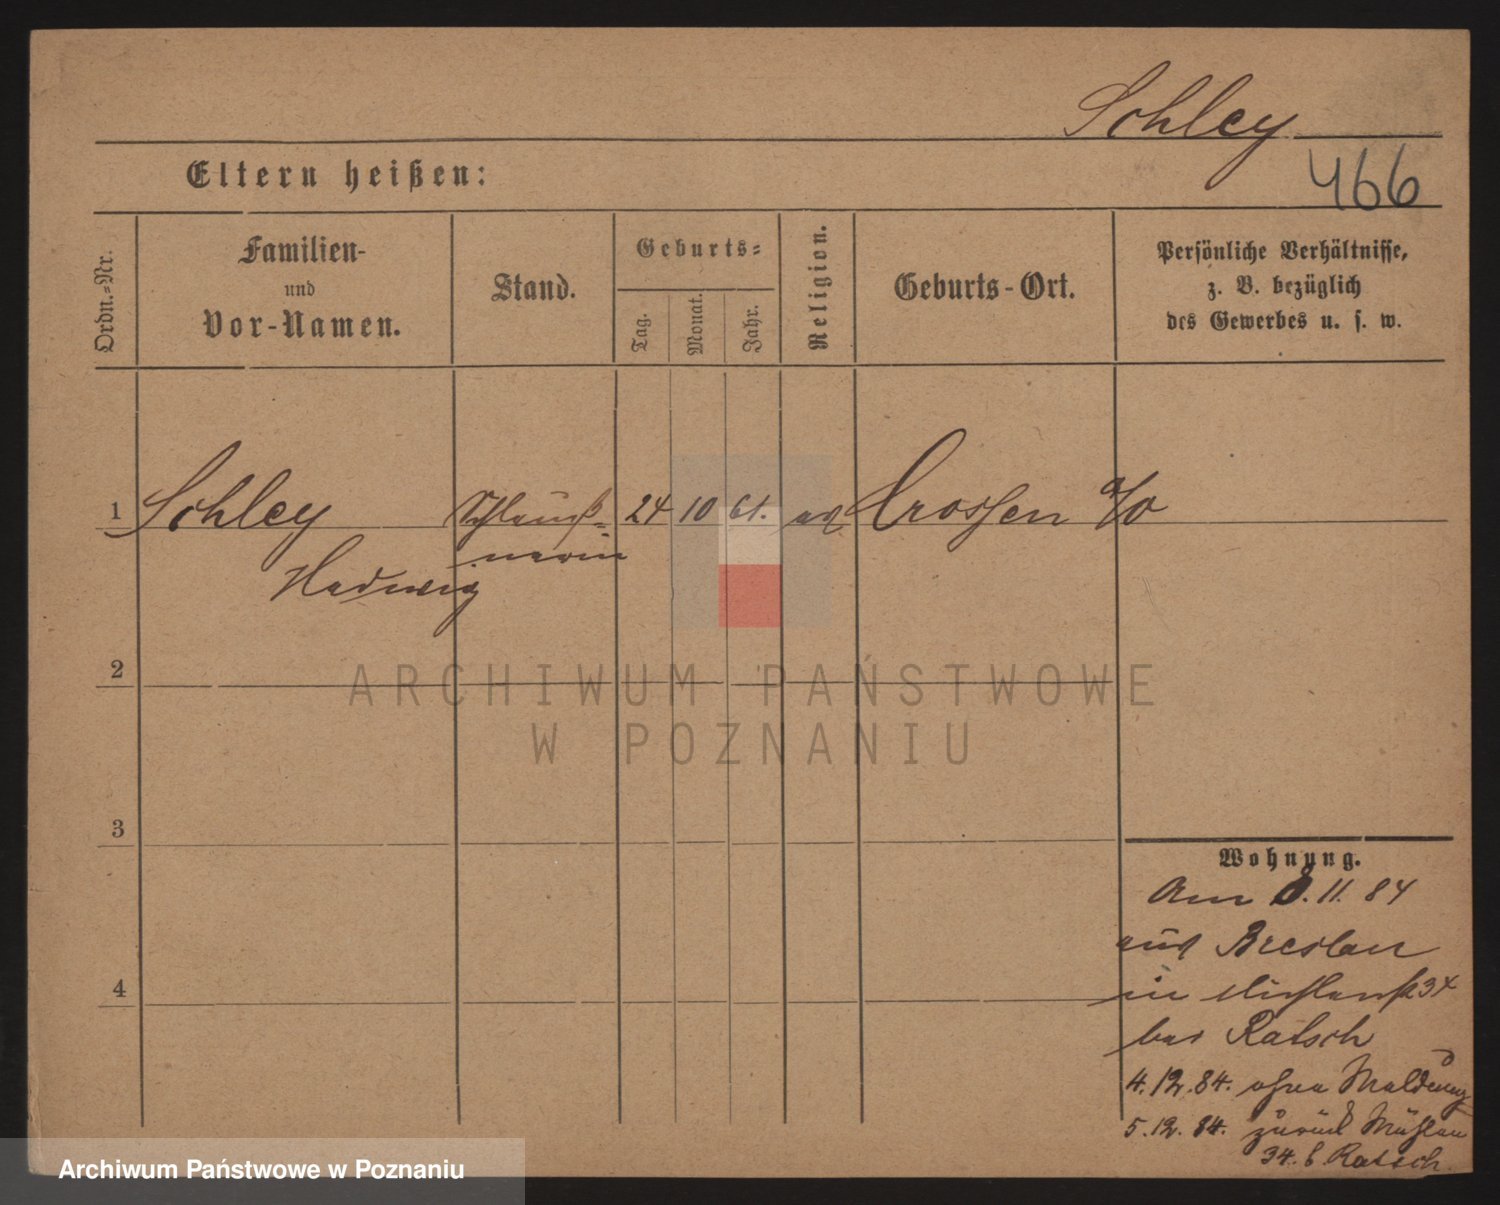 Schley
Eltern heißen:
466
Ordn.-Nr.
Familien-
und
Vor-Namen.
Stand.
Geburts-
Tag.
Monat.
Jahr.
Religion.
Geburts-Ort.
Persönliche Verhältnisse,
z. B. bezüglich
des Gewerbes u. s. w.
1 Schley 24 10 61. Crossen a/O
Hedwig
2
ARCHIWUM PAŃSTWOWE
W POZNANIU
3
Wohnung.
Am 8. 11. 84
aus Breslau
in 34
bei Ratsch
4
4. 12. 84. ohne Meldung
5. 12. 84. zurück Mühlen
34. b. Ratsch.
Archiwum Państwowe w Poznaniu